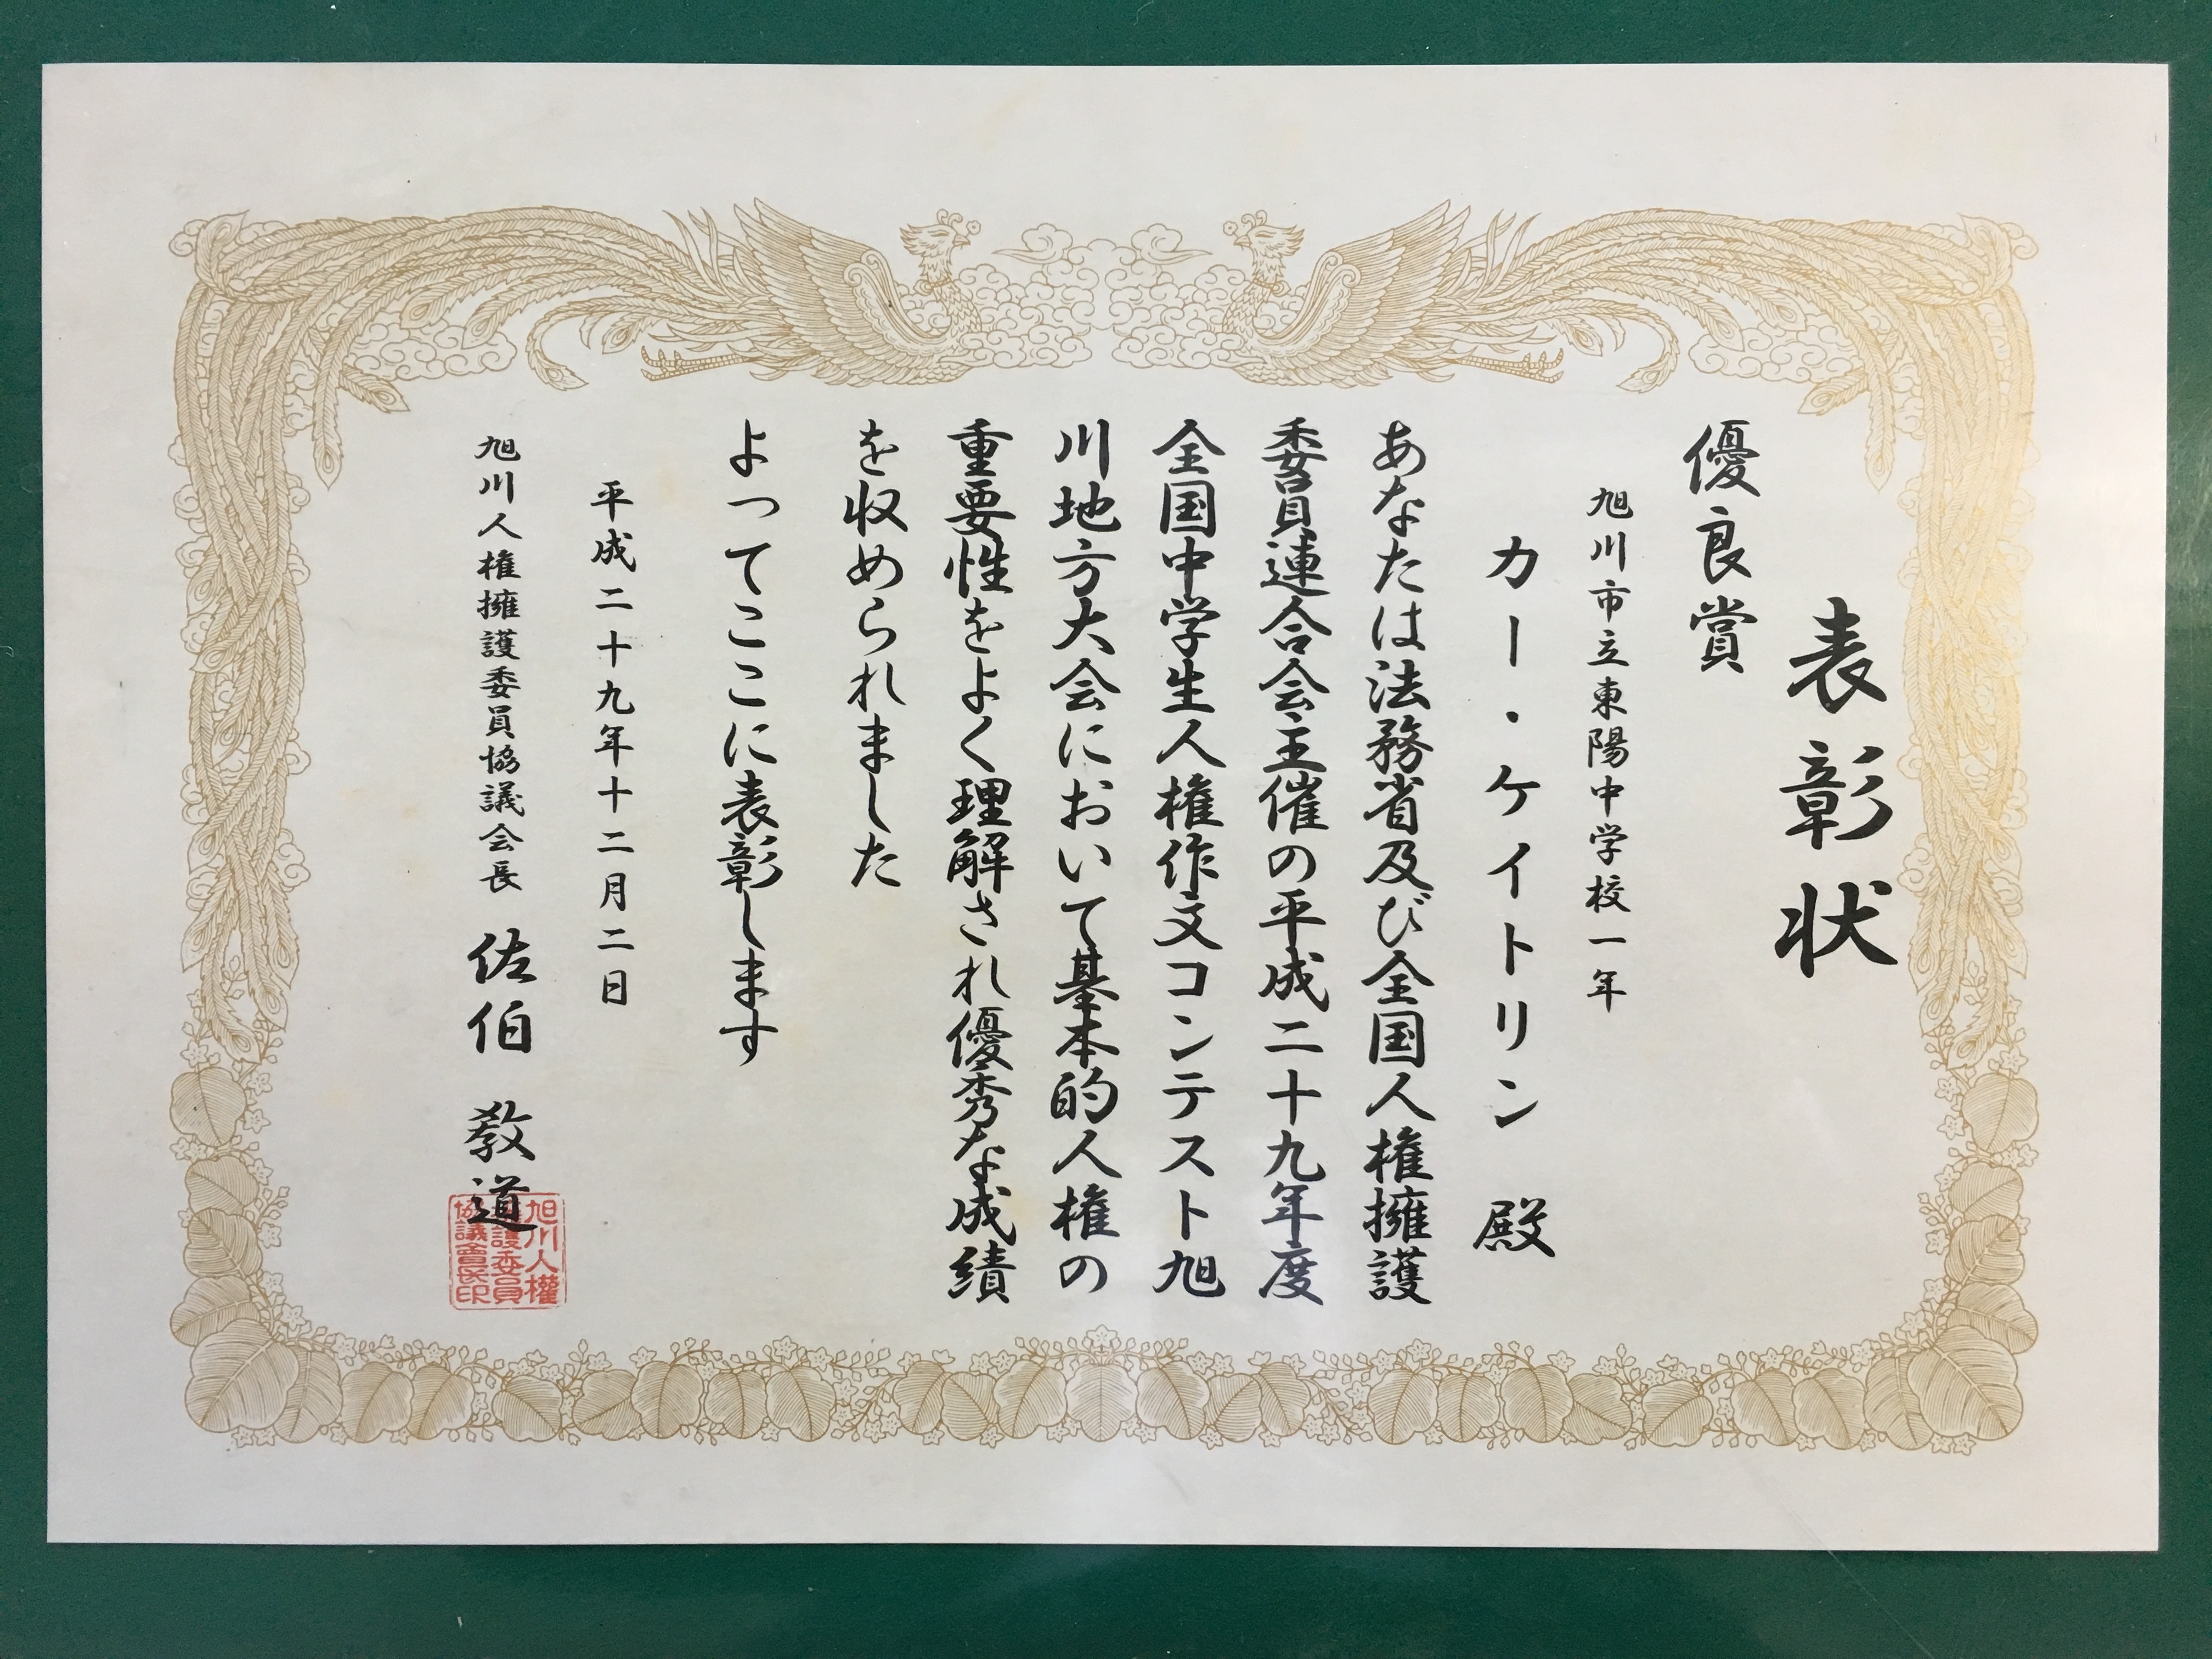 表彰状
優良賞
旭川市立東陽中学校一年
カー・ケイトリン 殿
あなたは法務省及び全国人権擁護
委員連合会主催の平成二十九年度
全国中学生人権作文コンテスト旭
川地方大会において基本的人権の
重要性をよく理解され優秀な成績
を収められました
よってここに表彰します
平成二十九年十二月二日
旭川人権擁護委員協議会長 佐伯 教道
旭川人權
護委員
協議會長印